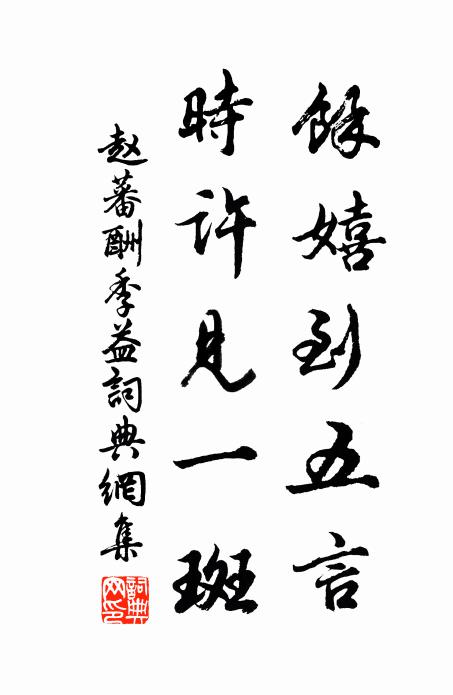 餘嬉到五言
時許見一斑
赵蕃酬季益詞典網集
詞典網印